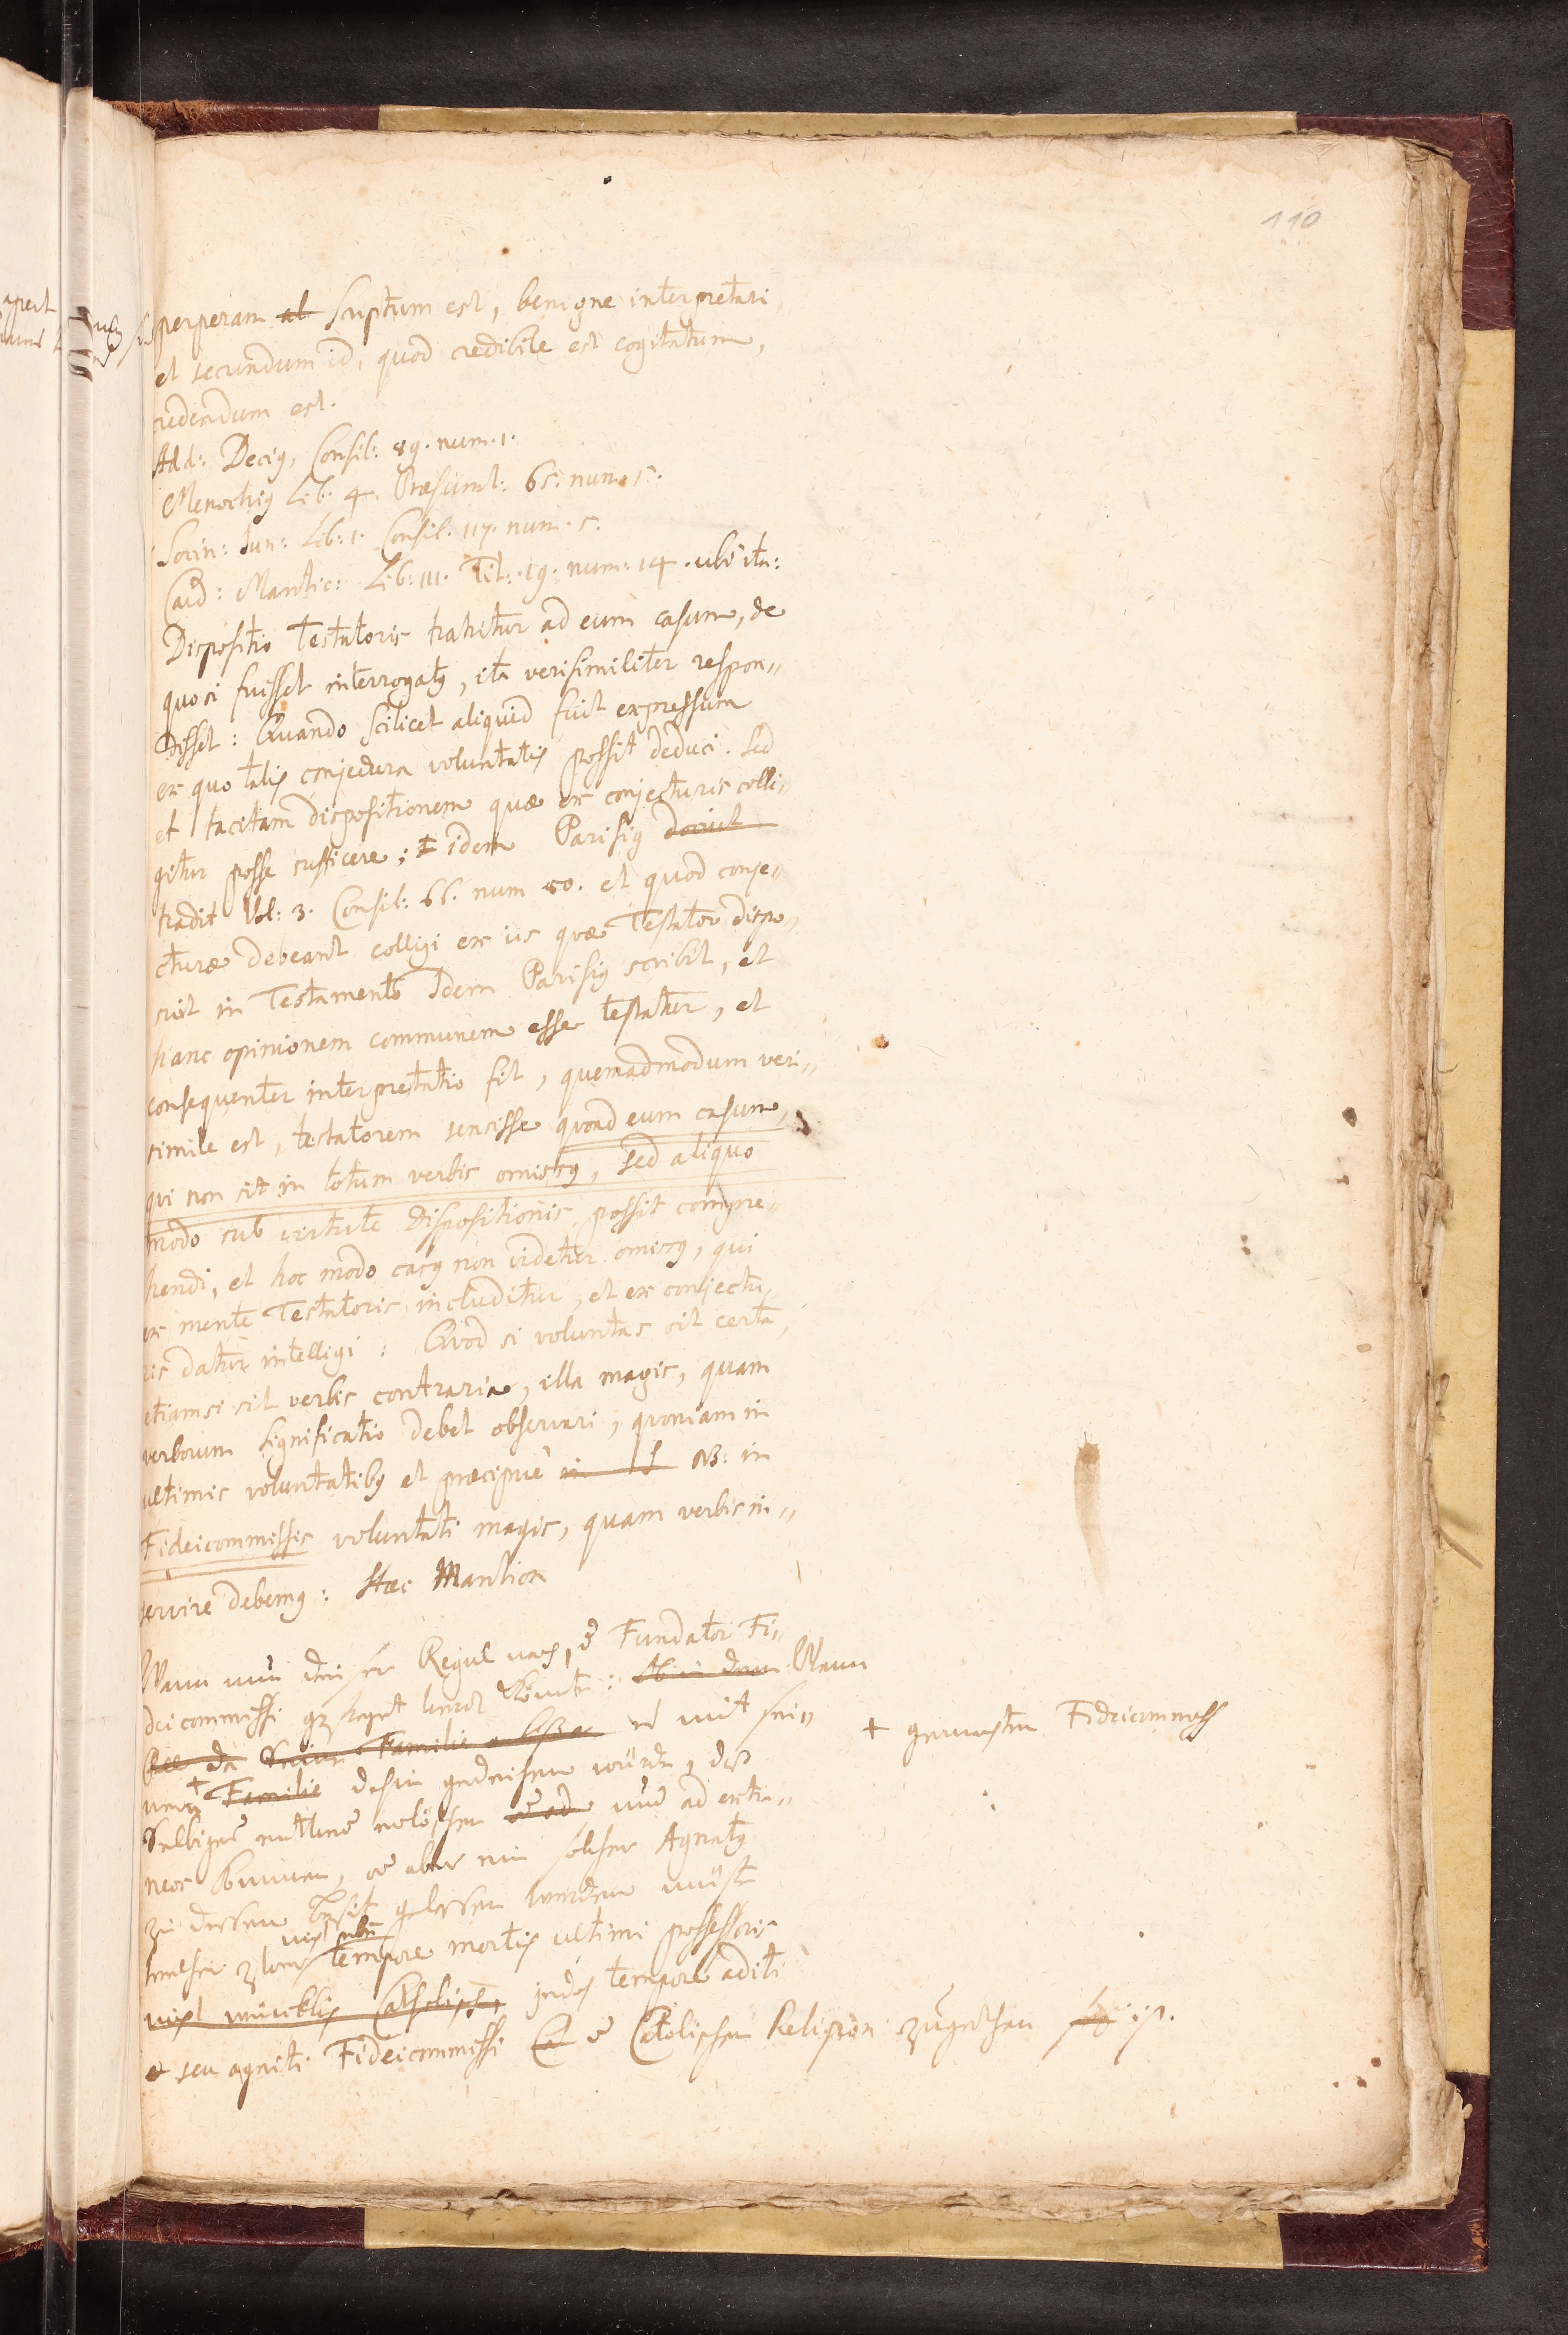 110
perperam al scriptum est, benigne interpretari,
et secundum id, quod credibile est cogitatum,
credendum est.
Add: Decig, Consil: 89. num. 1.
Menochig Lib: 4. Præsumt: 65. num. 5.
Socin: Jun: Lib: 1. Consil: 117. num. 5.
Card: Mantic: Lib: III. Tit: 19. num: 14. ubi ita:
Dispositio Testatoris trahitur ad eum casum, de
quo si fuisset interrogatg, ita verisimiliter respon„
disset: Quando scilicet aliquid fuit expressum
ex quo talis conjectura voluntatis possit deduci. Sed
et tacitam dispositionem quæ ex conjecturis colli„
gitur posse sufficere; idem Parisig docuit
tradit Vol: 3. Consil: 66. num 50. et quod conje„
cturæ debeant colligi ex iis quæ Testator dispo„
suit in Testamento Idem Parisig scribit, et
hanc opinionem communem esse testatur, et
consequenter interpretatio fit, quemadmodum veri„
simile est, testatorem sensisse quoad eum casum,
qui non sit in totum verbis omissg, sed aliquo
modo sub virtute Dispositionis possit compre„
hendi, et hoc modo casg non videtur omissg, qui
ex mente Testatoris includitur, et ex conjectu„
ris datur intelligi: Quod si voluntas sit certa,
etiamsi sit verbis contraria, illa magis, quam
verborum significatio debet observari, quoniam in
ultimis voluntatibg et præcipuè in NB: in
Fideicommissis voluntati magis, quam verbis in„
servire debemg: Hæc Mantica
Wann nun Regul nach, Fundator Fi„
dei commissi werd könte: Wann
da Familie mit sei„
+ gemachten Fideicommiss
nem Familie dahin würde, daß
Selbiges und ad extra„
neos kommen, aber ein solcher Agnatg
zu dessen gelassen werden müste
welcher zwar tempore mortis ultimi possessoris
nicht würcklich Catholisch, jedoch tempore aditi
et seu agniti Fideicommissi Catolischen Religion zugethan ist.